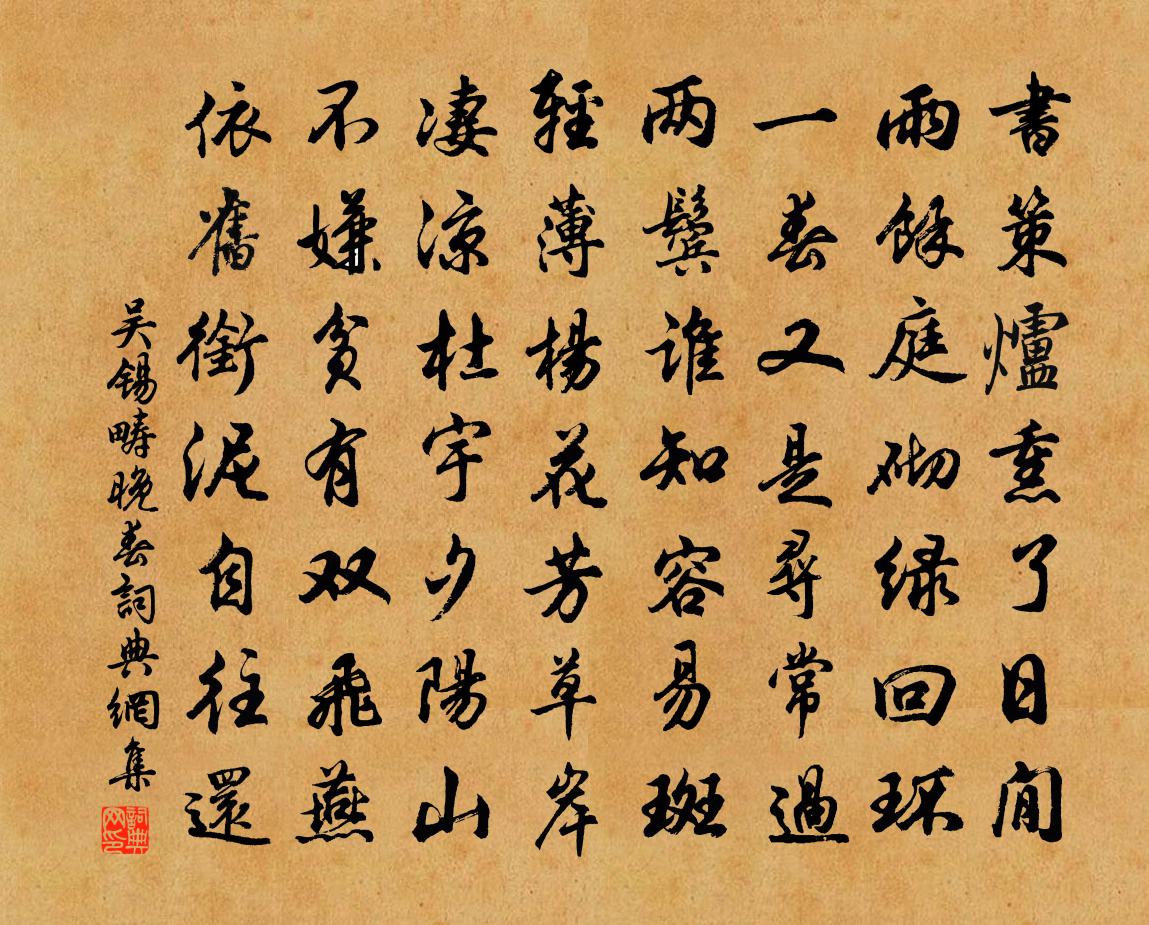 書策爐熏了日閒
雨餘庭砌绿回环
一春又是尋常過
两鬓谁知容易斑
輕薄楊花芳草岸
凄涼杜宇夕陽山
不嫌贫有双飛燕
依舊銜泥自往還
吴锡畴晚春詞典網集
詞典网印